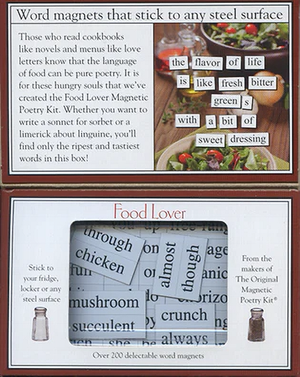 Word magnets that stick to any steel surface
Those who read cookbooks
like novels and menus like love
letters know that the language
of food can be pure poetry. It is
for these hungry souls that we've
created the Food Lover Magnetic
Poetry Kit. Whether you want to
write a sonnet for sorbet or a
limerick about linguine, you'll
find only the ripest and tastiest
words in this box!
the flavor of life
is like fresh bitter
green s
with a bit of
sweet dressing
Food Lover
Stick to
your fridge,
locker or any
steel surface
through
chicken
almost
though
on
mushroom
do
succulent
crunch
always
From the
makers of
The Original
Magnetic
Poetry Kit®
Over 200 delectable word magnets